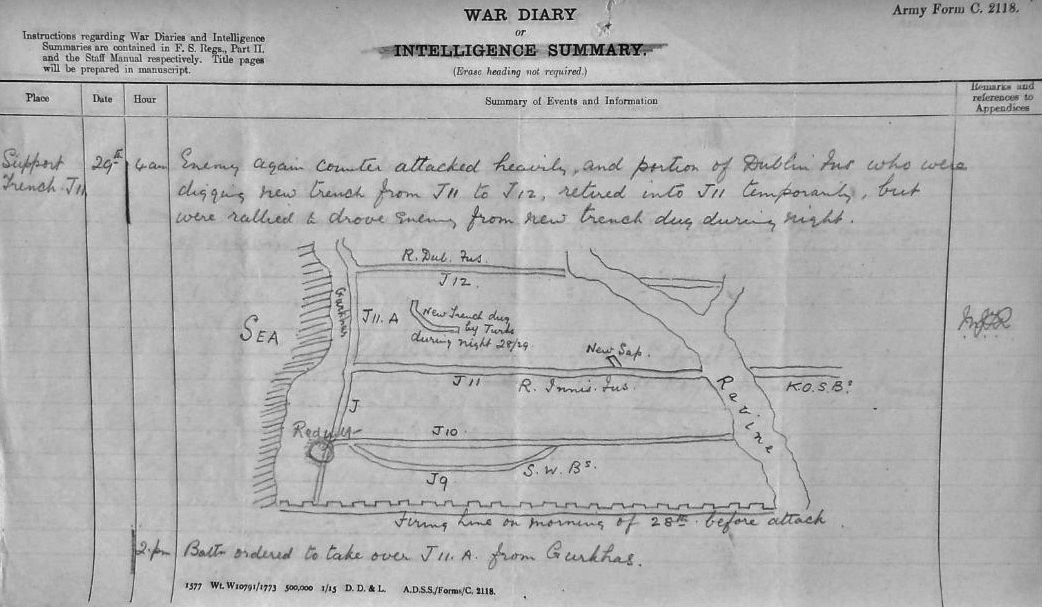 Army Form C. 2118.
WAR DIARY
or
INTELLIGENCE SUMMARY.
(Erase heading not required.)
Instructions regarding War Diaries and Intelligence
Summaries are contained in F. S. Regs., Part II.
and the Staff Manual respectively. Title pages
will be prepared in manuscript.
Place
Date
Hour
Summary of Events and Information
Remarks and
references to
Appendices
Support
Trench J11
29th
4am
Enemy again counter attacked heavily, and portion of Dublin Fus who were
digging new trench from J11 to J12, retired into J11 temporarily, but
were rallied & drove Enemy from new trench dug during night.
R. Dub. Fus.
J12.
Gurkhas
SEA
J11.A
New Trench dug
by Turks
during night 28/29
New Sap.
J11
R. Innis. Fus.
Ravine
K.O.S.Bs.
J
Redoubt
J10
J9
S.W.Bs.
Firing line on morning of 28th before attack.
2.pm
Battn ordered to take over J11.A. from Gurkhas.
1577 Wt. W10791/1773 500,000 1/15 D. D. & L. A.D.S.S./Forms/C. 2118.